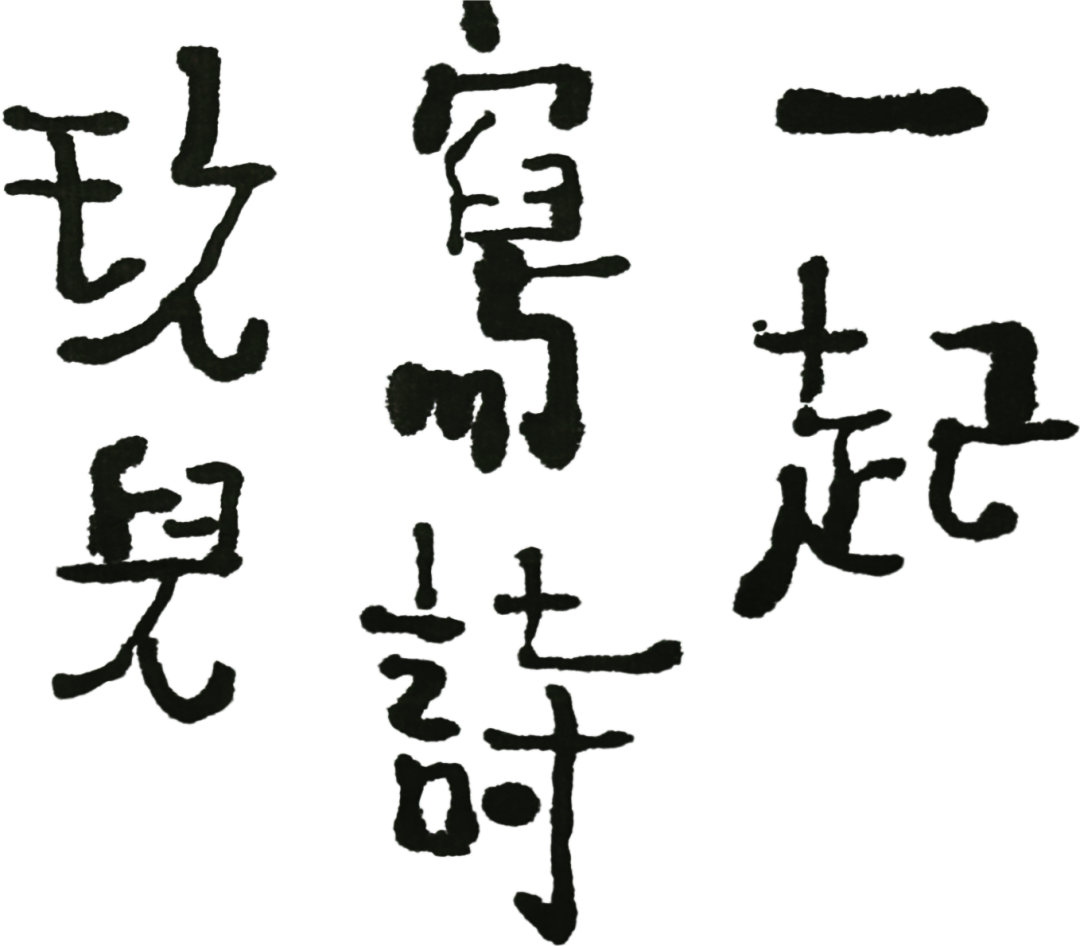 一起
寫詩
玩兒